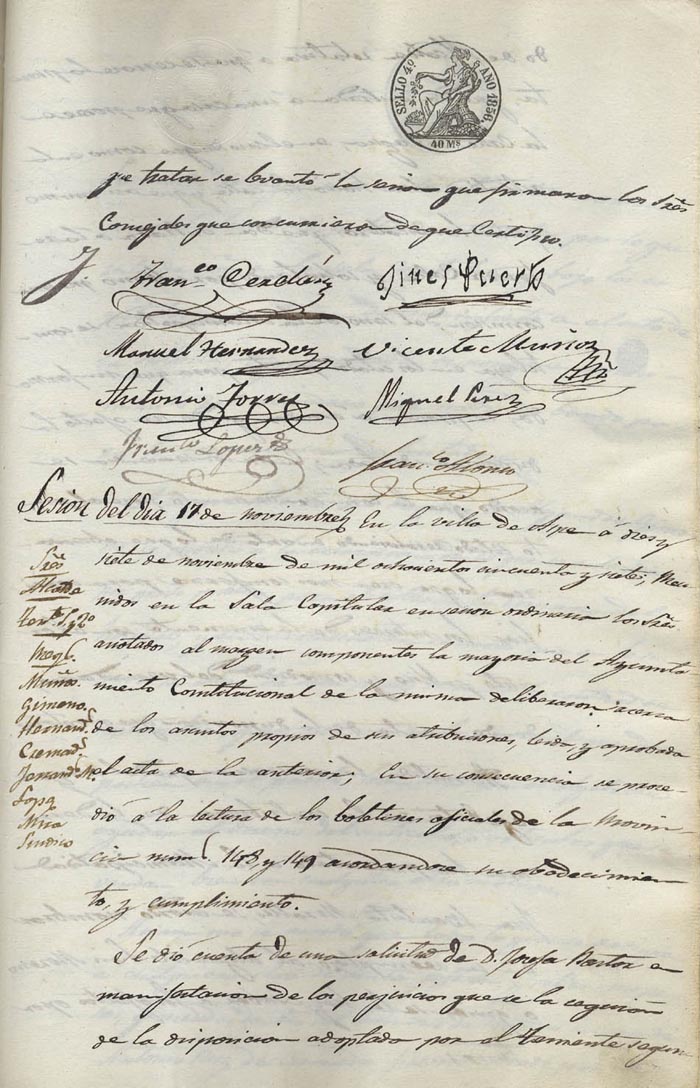 SELLO 4º AÑO 1856.
40 Ms
que tratar se levantó la sesion que firmaron los Sres
Concejales que concurrieron de que Certifico.
Franco Cerdán Gines Puerto
Manuel Hernandez Vicente Muñoz
Antonio Torres Miguel Perez
Lopez Franco Alonso
Sesion del dia 17 de noviembre En la villa de Aspe á diez y
siete de noviembre de mil ochocientos cincuenta y siete, Reu
nidos en la Sala Capitular en sesion ordinaria los Sres
anotados al margen componentes la mayoria del Ayunta
miento Constitucional de la misma deliberaron acerca
de los asuntos propios de sus atribuciones, leida y aprobada
el acta de la anterior; En su consecuencia se proce-
dió á la lectura de los boletines oficiales de la Provin
cia nums 148 y 149 acordandose su obedecimien
to, y cumplimiento.
Se dió cuenta de una solicitud de D. Josefa Pastor en
manifestacion de los perjuicios que se la seguian
de la disposicion adoptada por el Teniente segun
Sres
Alcalde
Tente 1º y 2º
Muños.
Gimeno.
Hernandz
Cremads
Fernandz
Lopz
Mira
Sindico